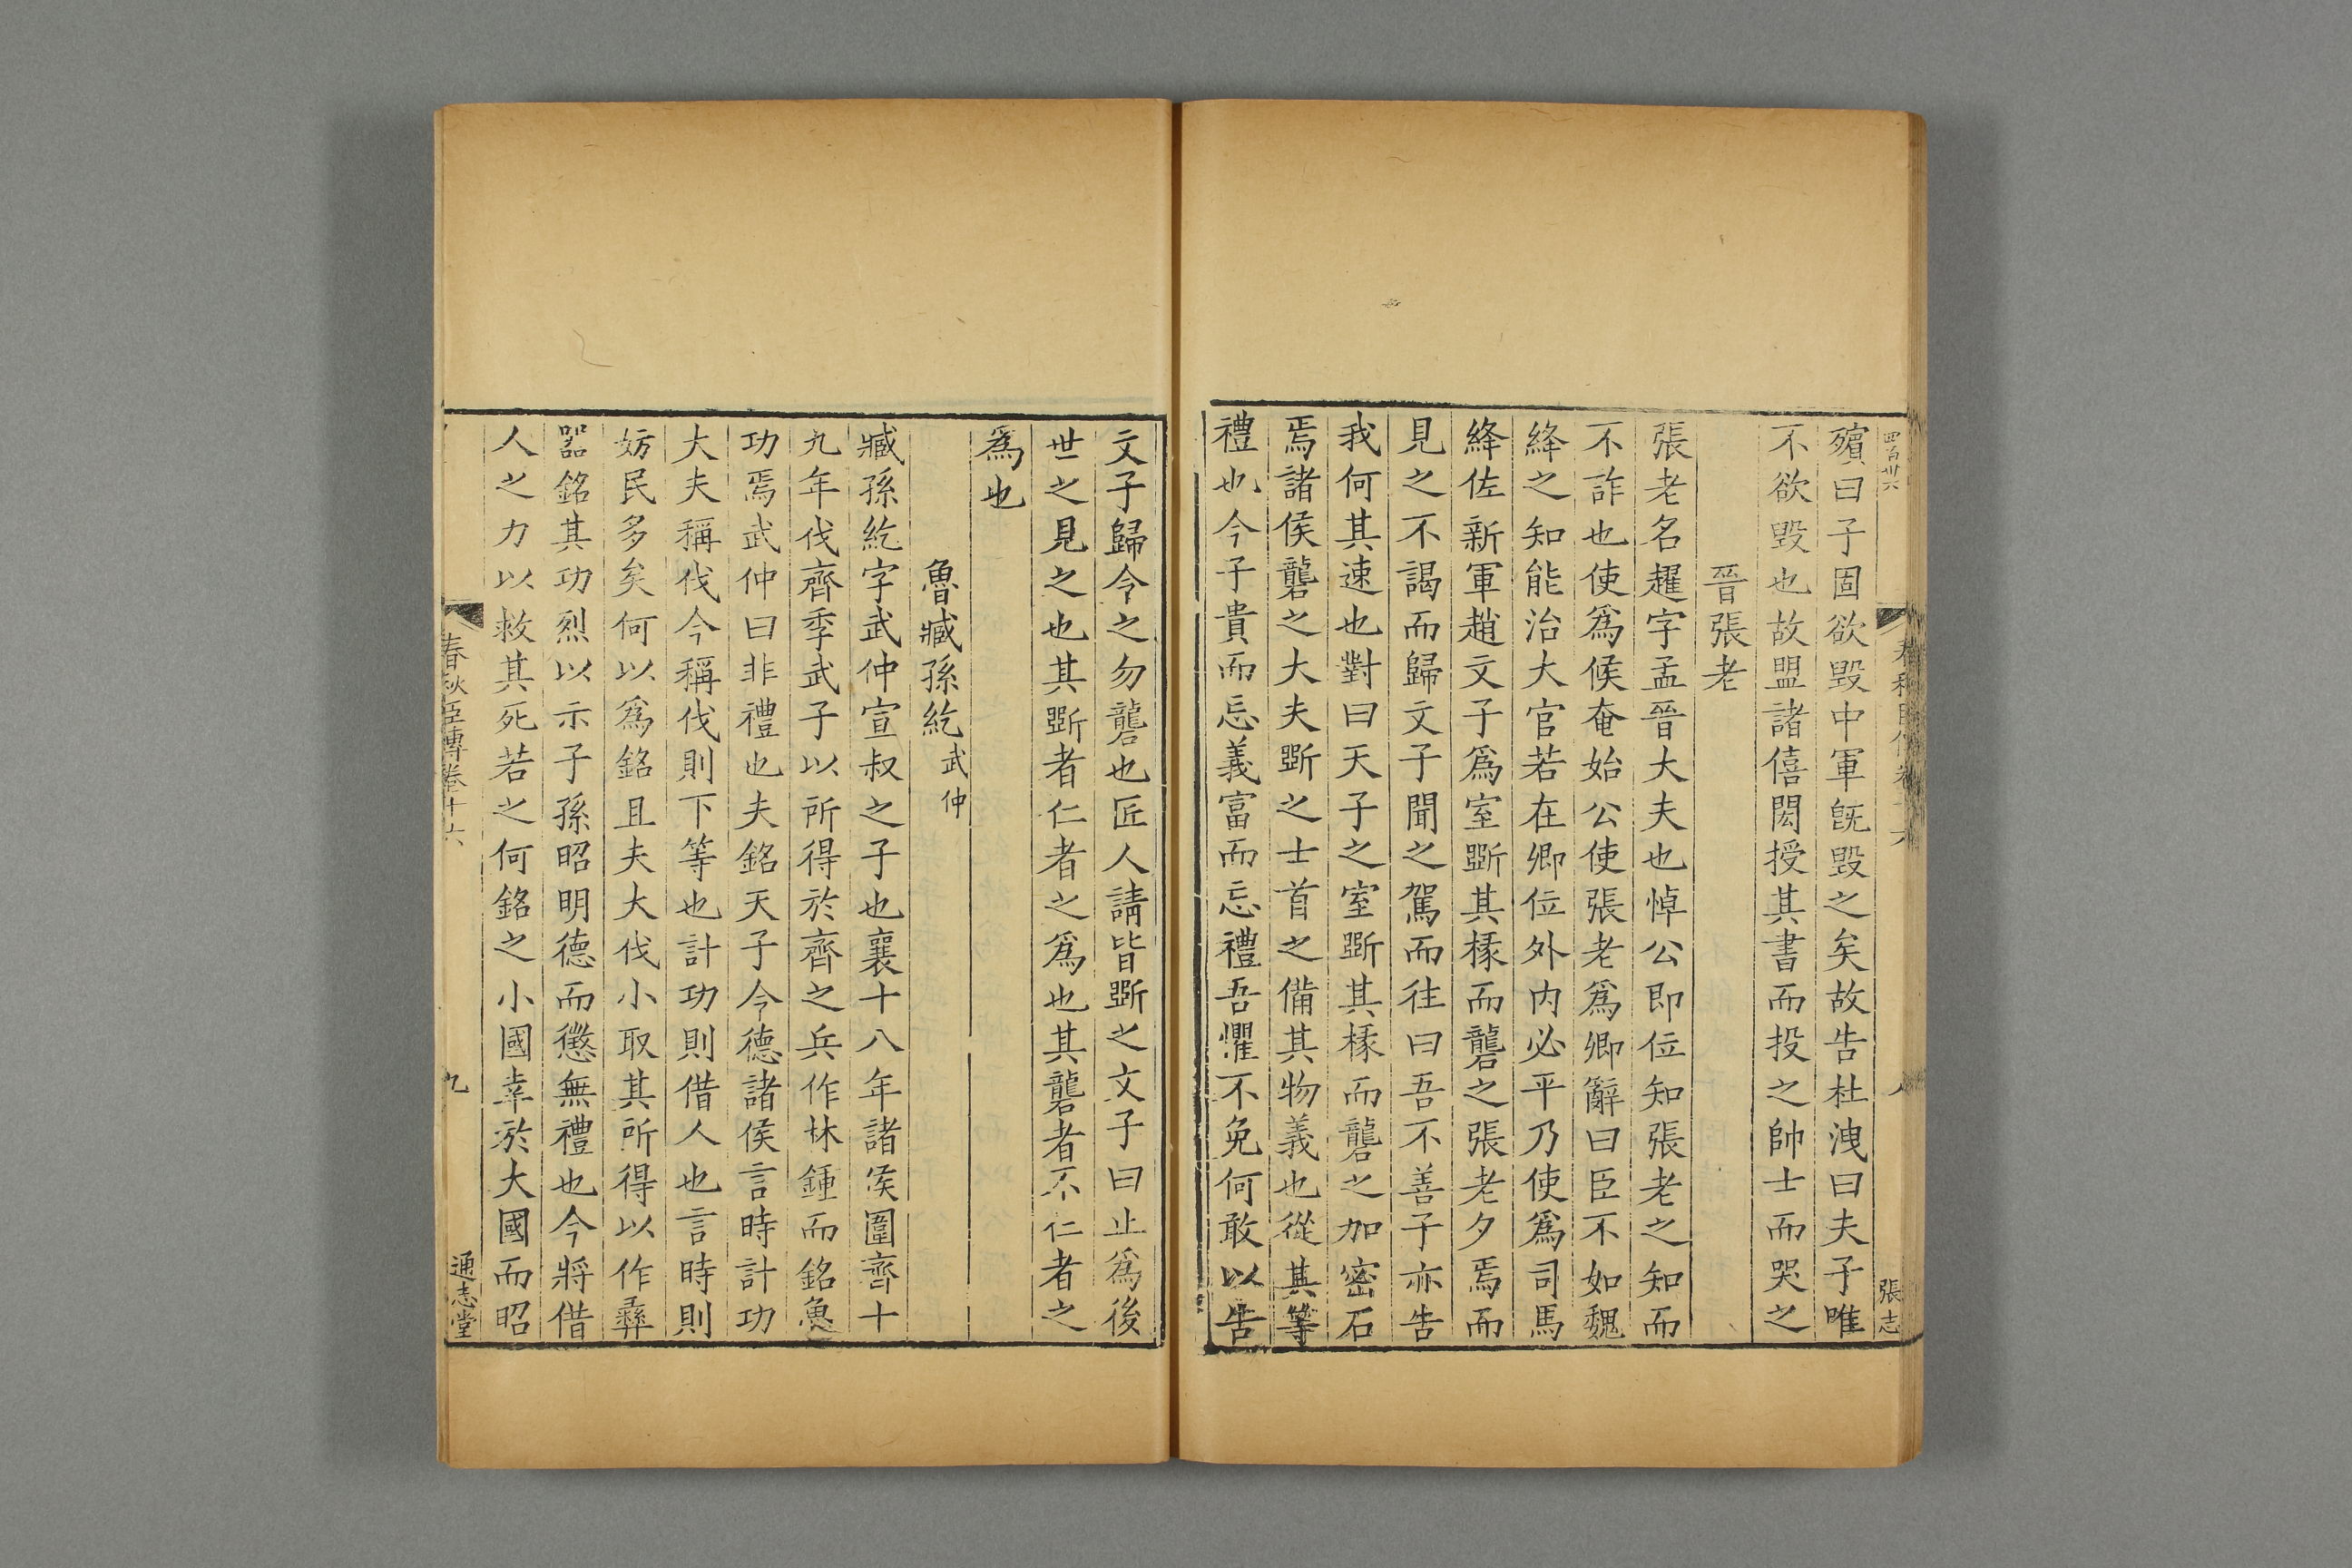 四百卅六
張志
殯曰子固欲毀中軍旣毀之矣故告杜洩曰夫子唯
不欲毀也故盟諸僖閎授其書而投之帥士而哭之
晉張老
張老名趯字孟晉大夫也悼公即位知張老之知而
不詐也使爲候奄始公使張老爲卿辭曰臣不如魏
絳之知能治大官若在卿位外内必平乃使爲司馬
絳佐新軍趙文子爲室斵其椽而礱之張老夕焉而
見之不謁而歸文子聞之駕而往曰吾不善子亦告
我何其速也對曰天子之室斵其椽而礱之加密石
焉諸侯礱之大夫斵之士首之備其物義也從其等
禮也今子貴而忘義富而忘禮吾懼不免何敢以告
文子歸令之勿礱也匠人請皆斵之文子曰止爲後
世之見之也其斵者仁者之爲也其礱者不仁者之
爲也
魯臧孫紇武仲
臧孫紇字武仲宣叔之子也襄十八年諸侯圍齊十
九年伐齊季武子以所得於齊之兵作林鍾而銘魯
功焉武仲曰非禮也夫銘天子令德諸侯言時計功
大夫稱伐今稱伐則下等也計功則借人也言時則
妨民多矣何以爲銘且夫大伐小取其所得以作彝
器銘其功烈以示子孫昭明德而懲無禮也今將借
人之力以救其死若之何銘之小國幸於大國而昭
春秋臣傳卷十六
九
通志堂